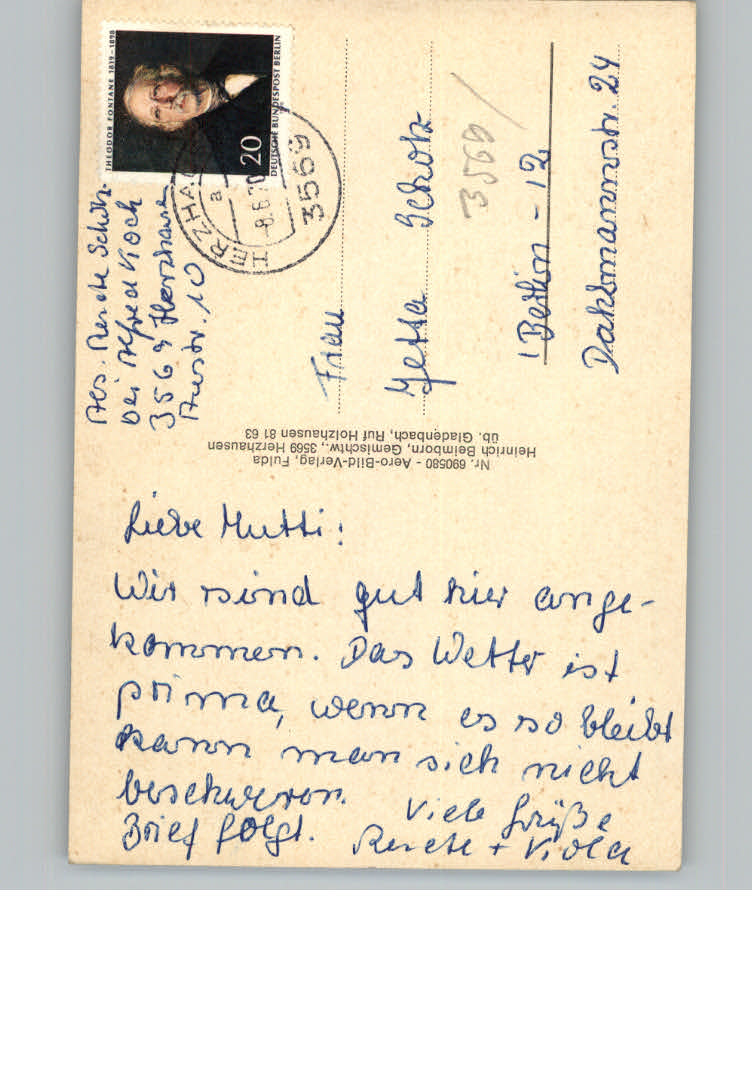 THEODOR FONTANE 1819-1898
20
DEUTSCHE BUNDESPOST BERLIN
3569 HERZHA
a
-8.6.70
3569
Abs. Renate Scholz
bei Alfred Koch
3569 Herzhausen
10
3569
Frau
Scholz
1 Berlin - 12
Dahlmannstr. 24
Nr. 690580 - Aero-Bild-Verlag, Fulda
Heinrich Beimborn, Gemischtw., 3569 Herzhausen
üb. Gladenbach, Ruf Holzhausen 81 63
Liebe Mutti!
Wir sind gut hier ange-
kommen. Das Wetter ist
prima, wenn es so bleibt
kann man sich nicht
beschweren.
Brief folgt. Viele Grüße
Renate + Viola